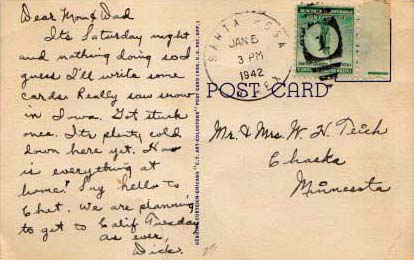 Dear Mom & Dad
Its Saturday night
and nothing doing so I
guess I'll write some
cards. Really saw snow
in Iowa. Got stuck
once. Its plenty cold
down here yet. How
is everything at
home? Say hello to
Chet. We are planning
to get to Calif Tuesday
as ever,
Dick.
SANTA ROSA
JAN 5
3 PM
1942
POST CARD
Mr. & Mrs. W. H. Teich
Chaska
Minnesota